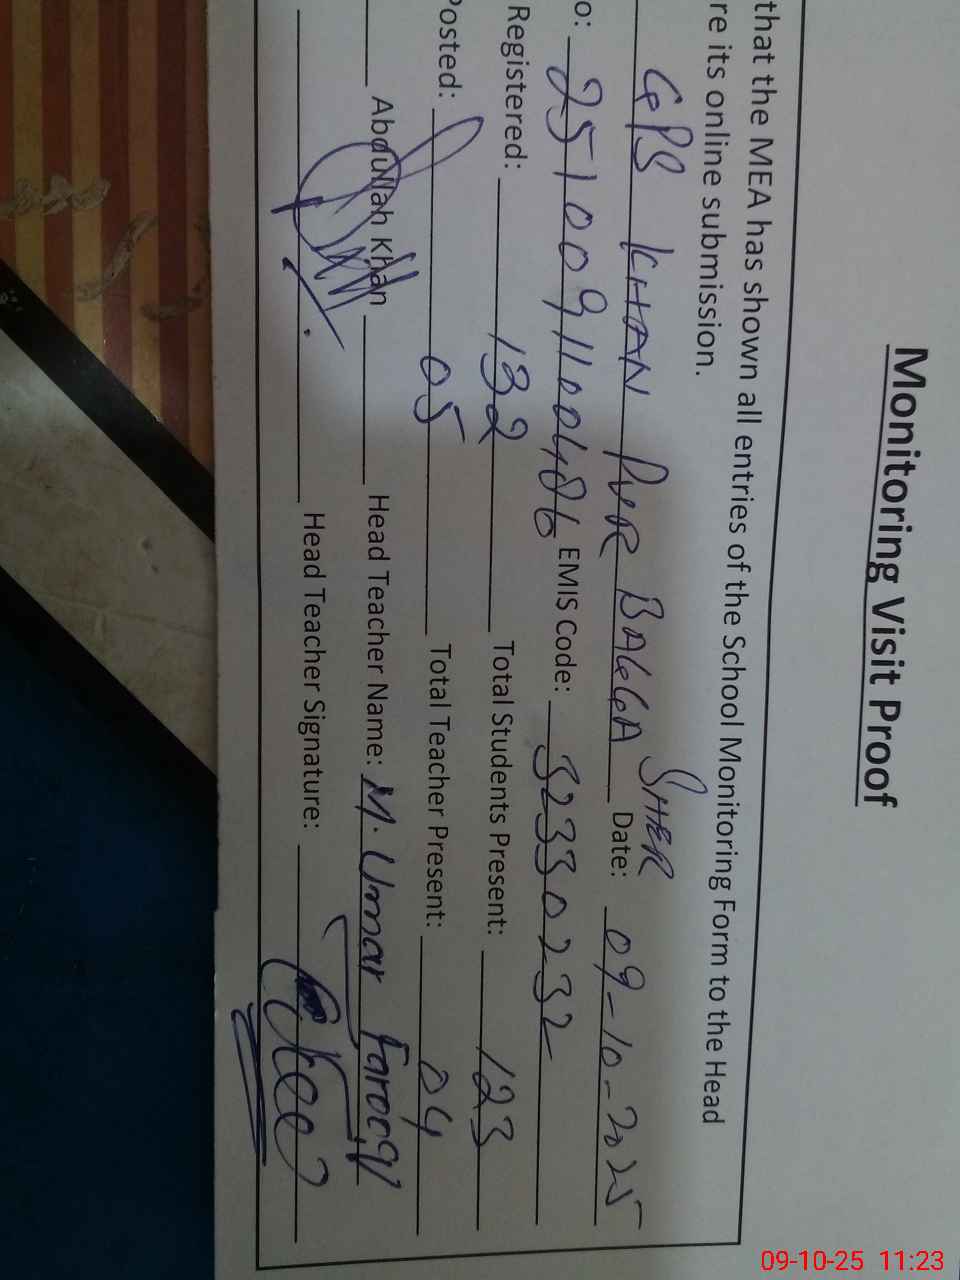 Monitoring Visit Proof
that the MEA has shown all entries of the School Monitoring Form to the Head
re its online submission.
GPS KHAN PUR BAGGA SHER Date: 09-10-2025
o: 2510091100486 EMIS Code: 32330232
Registered: 132 Total Students Present: 123
Posted: 05 Total Teacher Present: 04
Abdullah Khan Head Teacher Name: M. Umar Farooq
Head Teacher Signature:
09-10-25 11:23